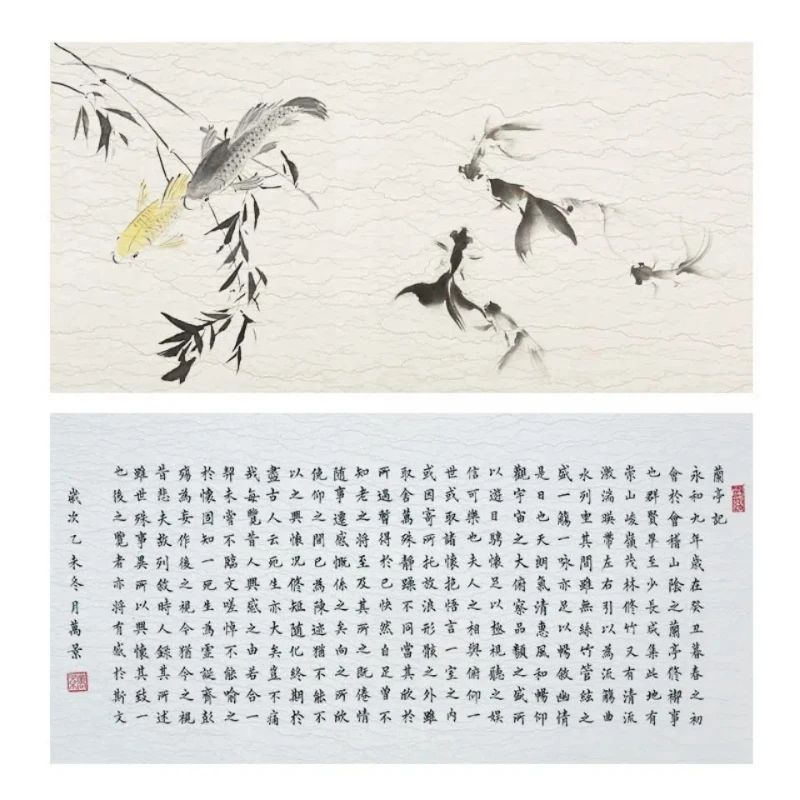 蘭亭記
永和九年歲在癸丑暮春之初
會於會稽山陰之蘭亭修禊事
也群賢畢至少長咸集此地有
崇山峻嶺茂林修竹又有清流
激湍暎帶左右引以為流觴曲
水列坐其間雖無絲竹管絃之
盛一觴一詠亦足以暢敘幽情
是日也天朗氣清惠風和暢仰
觀宇宙之大俯察品類之盛所
以遊目騁懷足以極視聽之娛
信可樂也夫人之相與俯仰一
世或取諸懷抱悟言一室之內
或因寄所托放浪形骸之外雖
取舍萬殊靜躁不同當其欣於
所遇暫得於己快然自足曾不
知老之將至及其所之既倦情
隨事遷感慨係之矣向之所欣
俛仰之間已為陳迹猶不能不
以之興懷況修短隨化終期於
盡古人云死生亦大矣豈不痛
哉每覽昔人興感之由若合一
契未嘗不臨文嗟悼不能喻之
於懷固知一死生為虛誕齊彭
殤為妄作後之視今猶今之視
昔悲夫故列敘時人錄其所述
雖世殊事異所以興懷其致一
也後之覽者亦將有感於斯文
歲次乙未冬月萬景